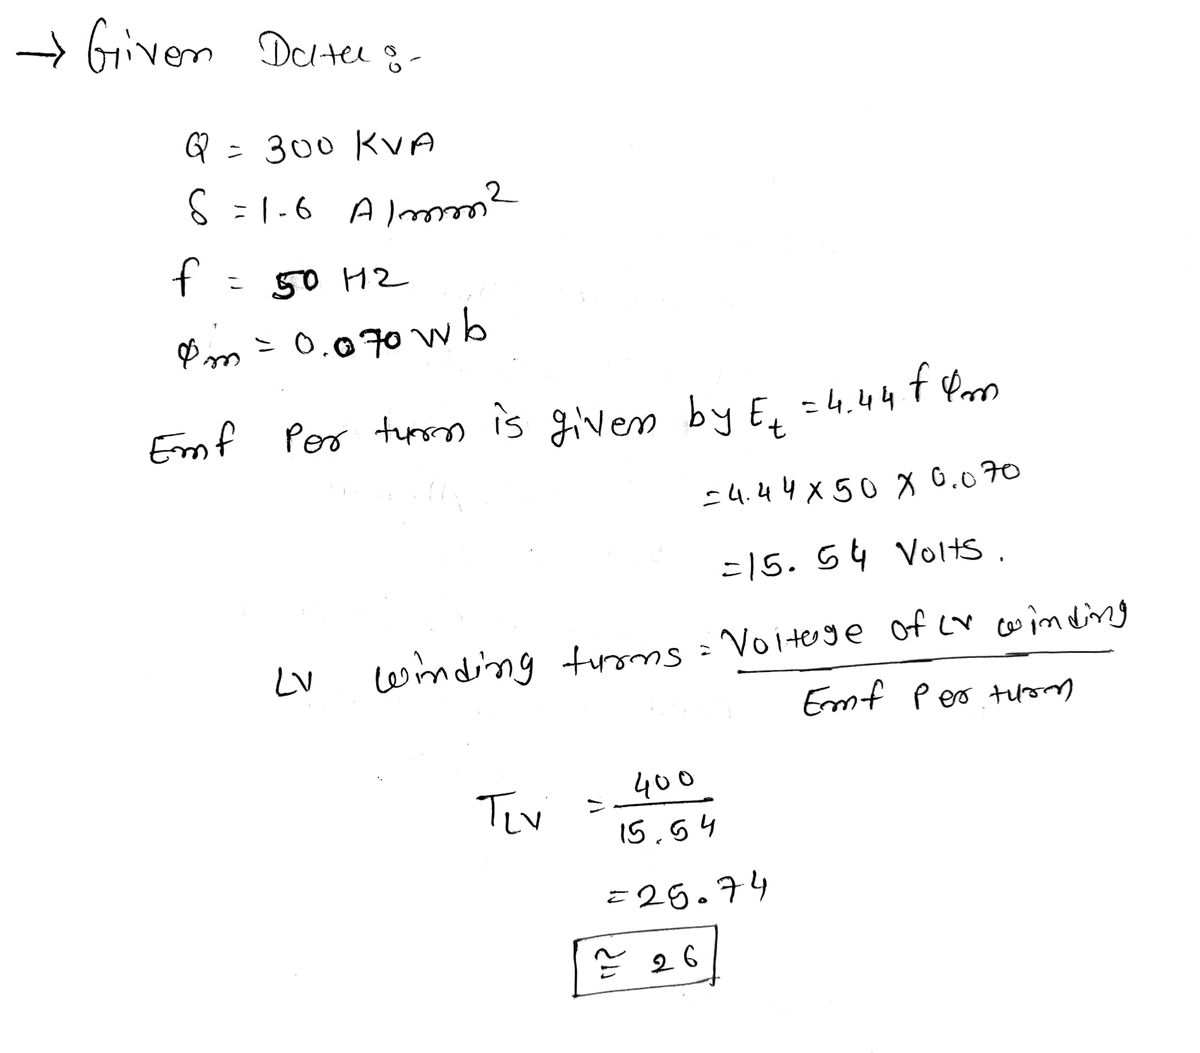 → Given Data :-
Q = 300 KVA
δ = 1.6 A/mm²
f = 50 HZ
φm = 0.070 wb
Emf Per turn is given by Et = 4.44 f φm
= 4.44 x 50 x 0.070
= 15.54 Volts.
LV winding turns = Voltage of LV winding
Emf Per turn
TLV = 400
15.54
= 25.74
≅ 26